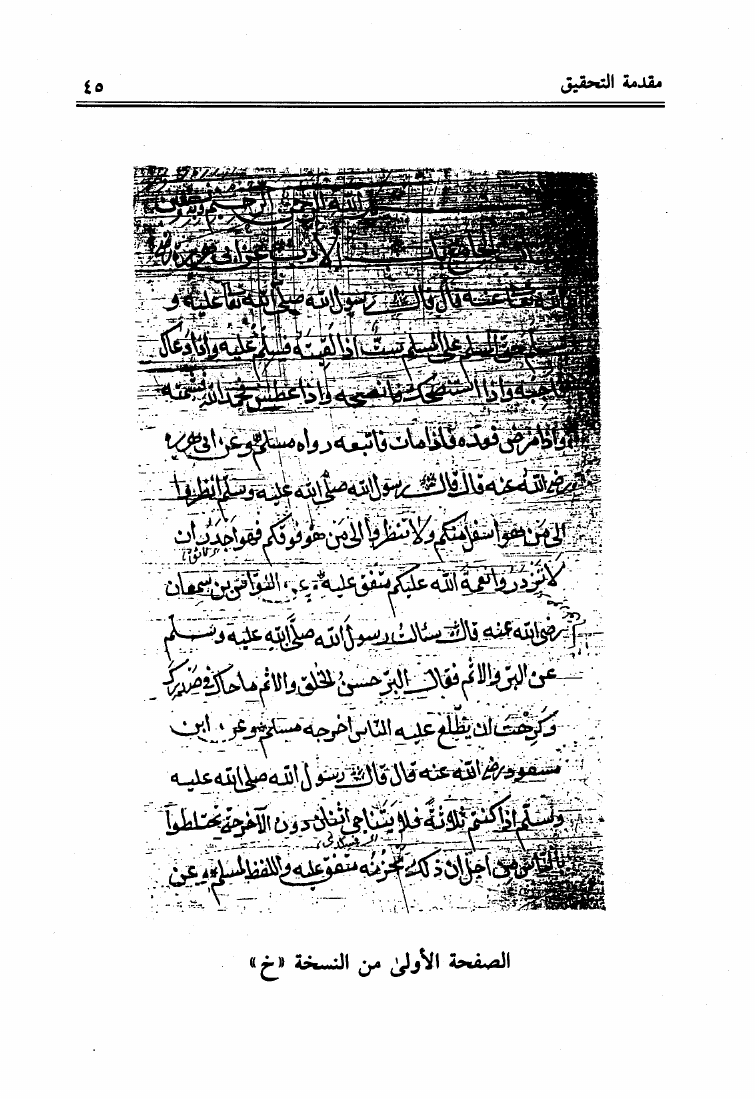 مقدمة التحقيق
٤٥
الله الرحمن الرحيم
الجامع باب الأدب عن أبي هريرة رضي
الله تعالى عنه قال قال رسول الله صلى الله تعالى عليه و
سلم حق المسلم على المسلم ست اذا لقيته فسلم عليه واذا دعاك
فاجبه واذا استنصحك فانصحه واذا عطس فحمد الله فشمته
واذا مرض فعده فاذا مات فاتبعه رواه مسلم وعن ابى هريرة
رضى الله عنه قال قال رسول الله صلى الله عليه وسلم انظروا
الى من هو اسفل منكم ولا تنظروا الى من هو فوقكم فهو اجدر ان
لا تزدروا نعمة الله عليكم متفق عليه وعن النواس بن سمعان
رضى الله عنه قال سالت رسول الله صلى الله عليه وسلم
عن البر والاثم فقال البر حسن الخلق والاثم ما حاك في صدرك
وكرهت ان يطلع عليه الناس اخرجه مسلم وعن ابن
مسعود رضى الله عنه قال قال رسول الله صلى الله عليه
وسلم اذا كنتم ثلاثة فلا يتناجى اثنان دون الآخر حتى تختلطوا
بالناس من اجل ان ذلك يحزنه متفق عليه واللفظ لمسلم وعن
الصفحة الأولىٰ من النسخة «خ»